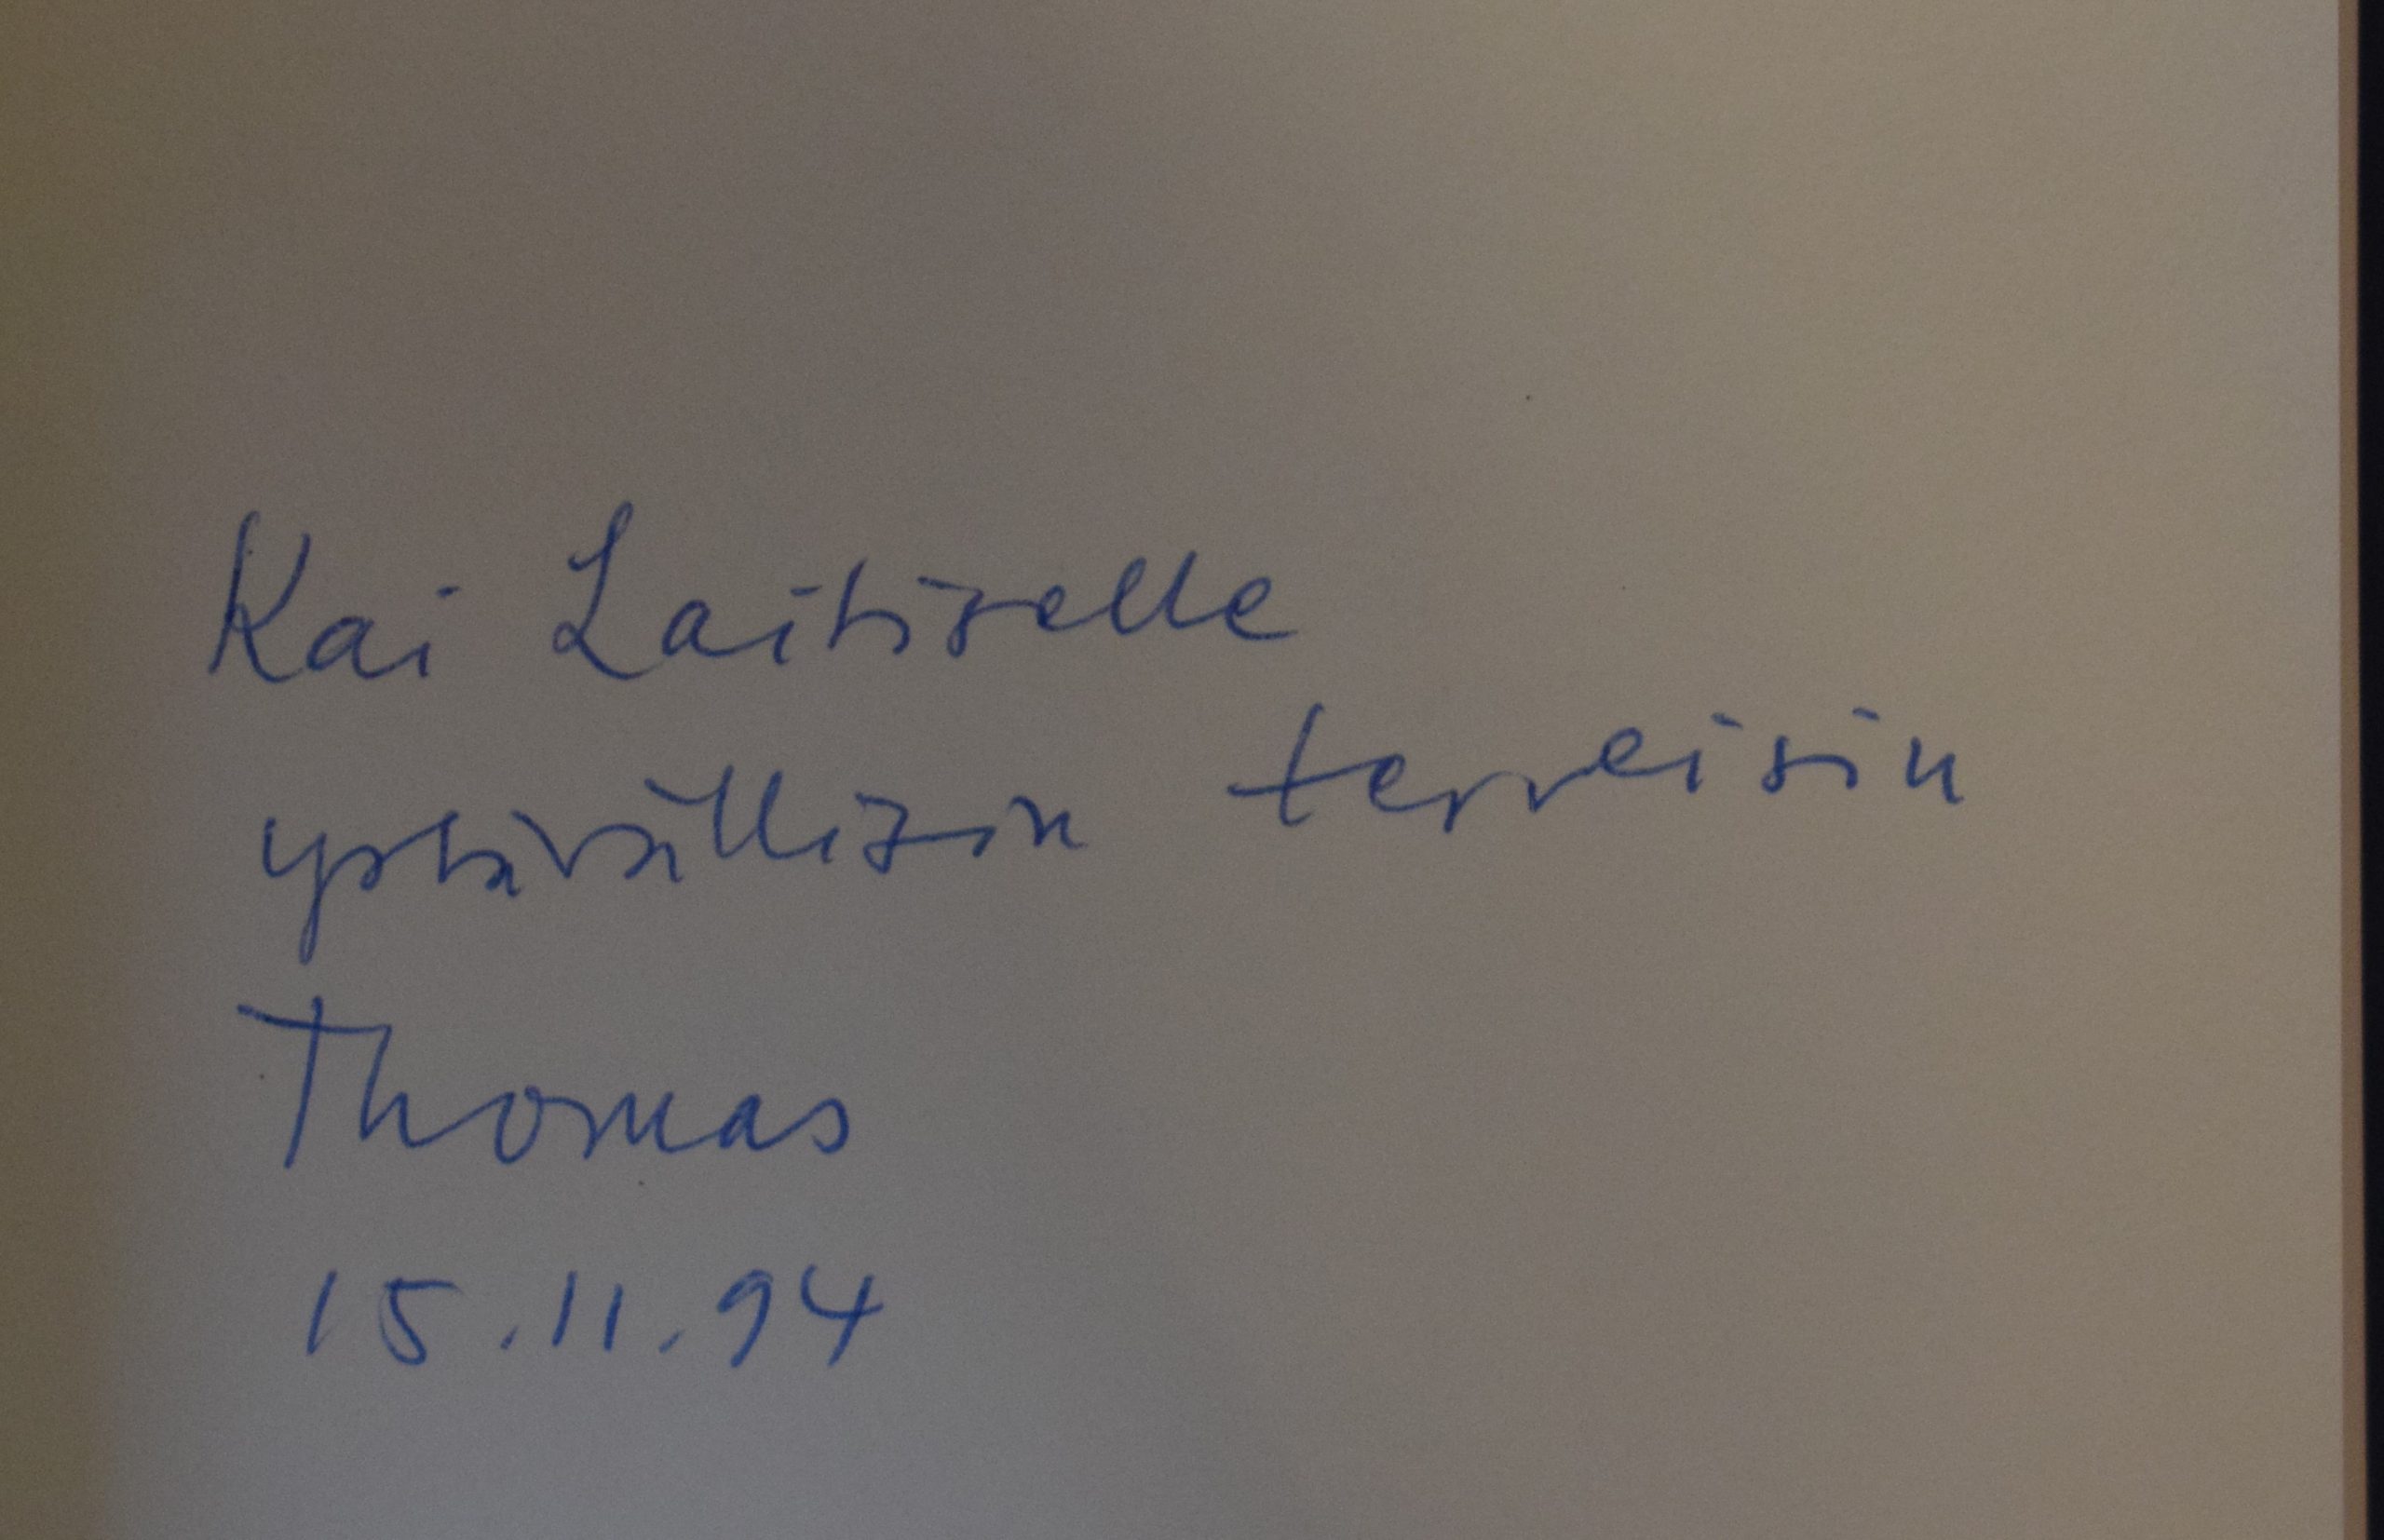 Kai Laitiselle
ystävällisin terveisin
Thomas
15.11.94